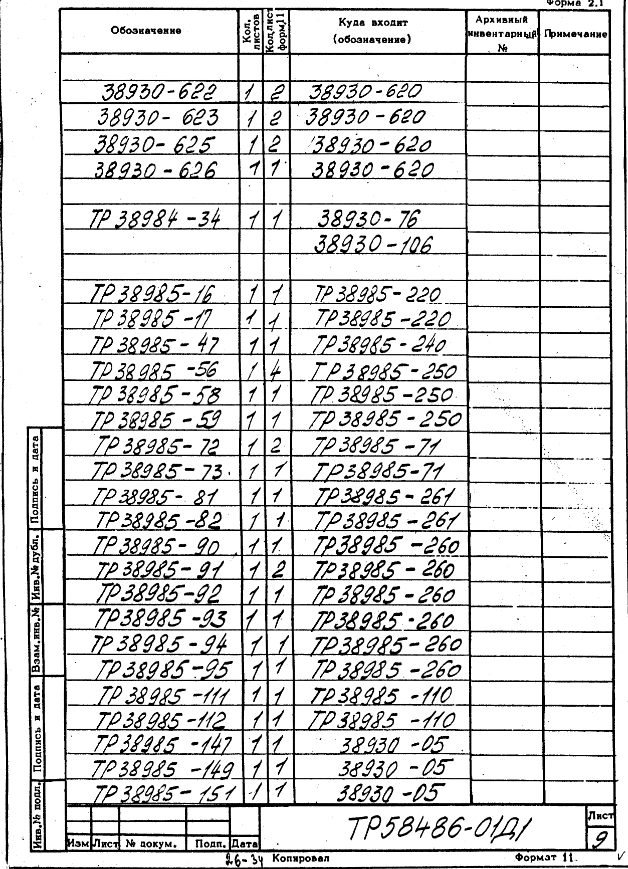 Форма 2.1
Обозначение Кол. листов Кол.лист форм.11 Куда входит (обозначение) Архивный инвентарный № Примечание
38930-622 1 2 38930-620
38930-623 1 2 38930-620
38930-625 1 2 38930-620
38930-626 1 1 38930-620
ТР 38984-34 1 1 38930-76
38930-106
ТР 38985-16 1 1 ТР 38985-220
ТР 38985-17 1 1 ТР 38985-220
ТР 38985-47 1 1 ТР 38985-240
ТР 38985-56 1 4 ТР 38985-250
ТР 38985-58 1 1 ТР 38985-250
ТР 38985-59 1 1 ТР 38985-250
ТР 38985-72 1 2 ТР 38985-71
ТР 38985-73 1 1 ТР 38985-71
ТР 38985-81 1 1 ТР 38985-261
ТР 38985-82 1 1 ТР 38985-261
ТР 38985-90 1 1 ТР 38985-260
ТР 38985-91 1 2 ТР 38985-260
ТР 38985-92 1 1 ТР 38985-260
ТР 38985-93 1 1 ТР 38985-260
ТР 38985-94 1 1 ТР 38985-260
ТР 38985-95 1 1 ТР 38985-260
ТР 38985-111 1 1 ТР 38985-110
ТР 38985-112 1 1 ТР 38985-110
ТР 38985-147 1 1 38930-05
ТР 38985-149 1 1 38930-05
ТР 38985-151 1 1 38930-05
Подпись и дата
Инв.№ дубл.
Взам.инв.№
Подпись и дата
Инв.№ подл.
ТР58486-01Д1
Лист
9
Изм Лист № докум. Подп. Дата
26-34 Копировал Формат 11.